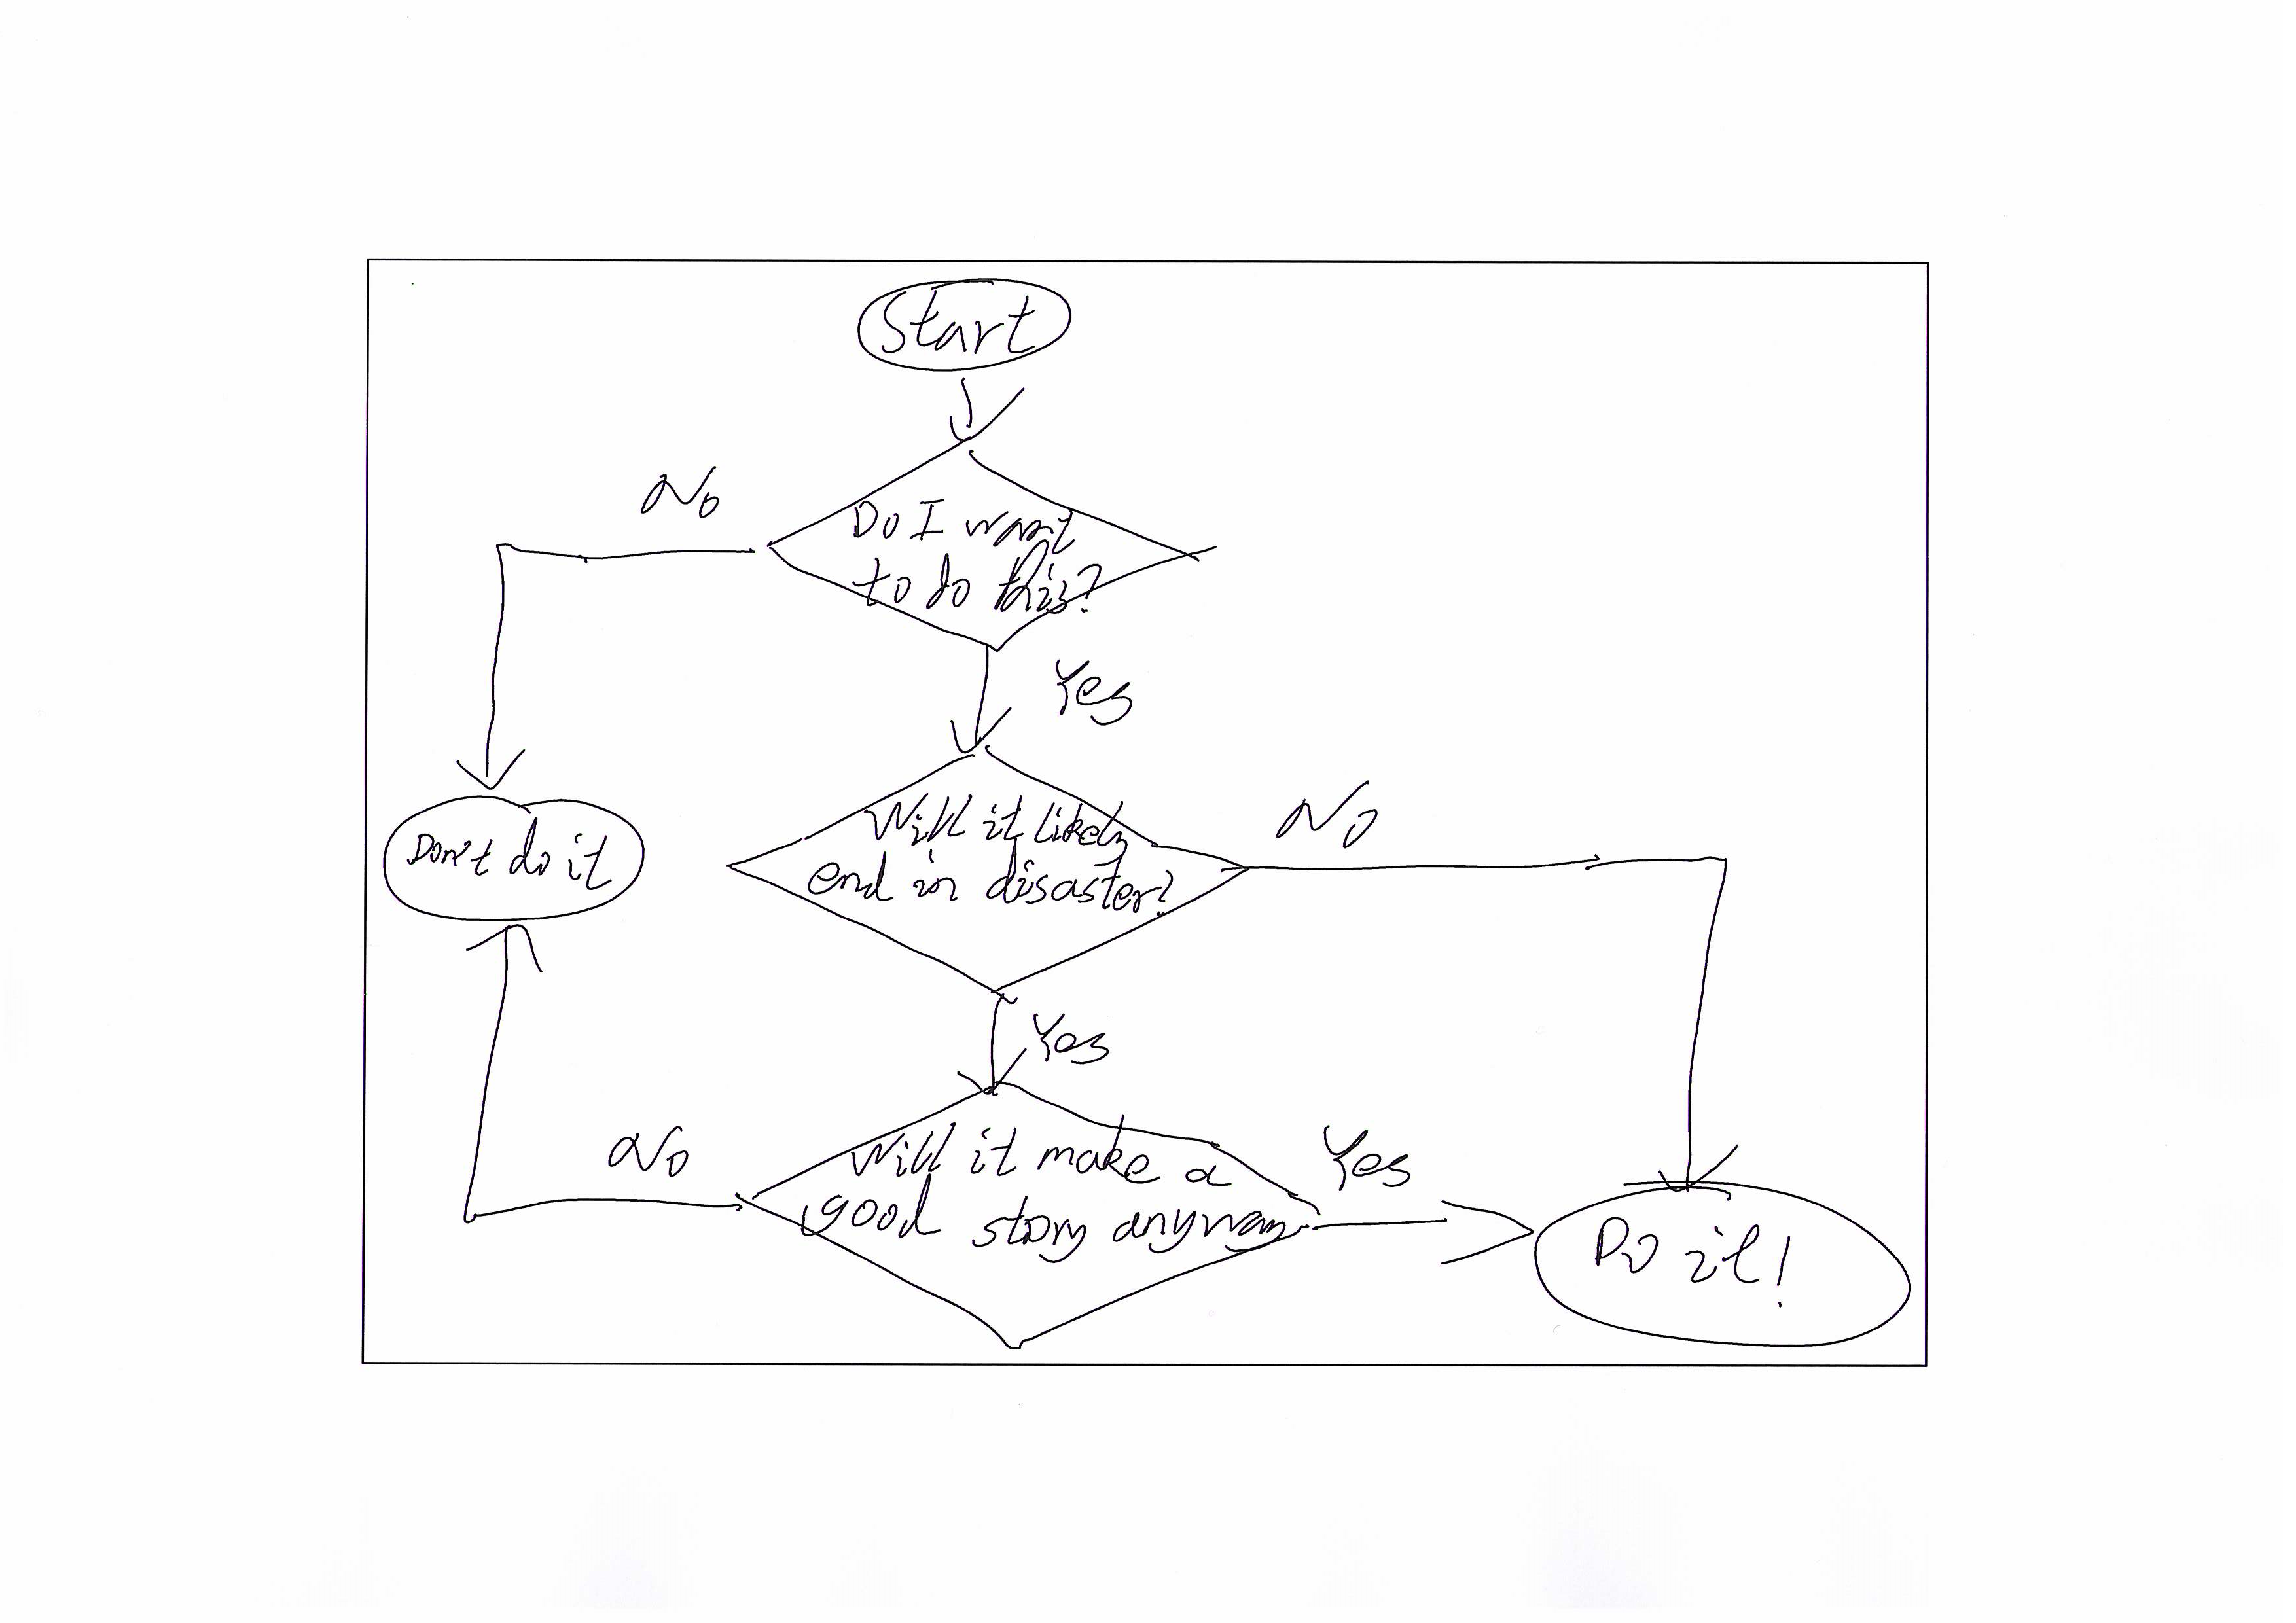 Start
No
Do I want
to do this?
Yes
Will it likely
end in disaster?
No
Don't do it
Yes
No
Will it make a
good story anyway
Yes
Do it!